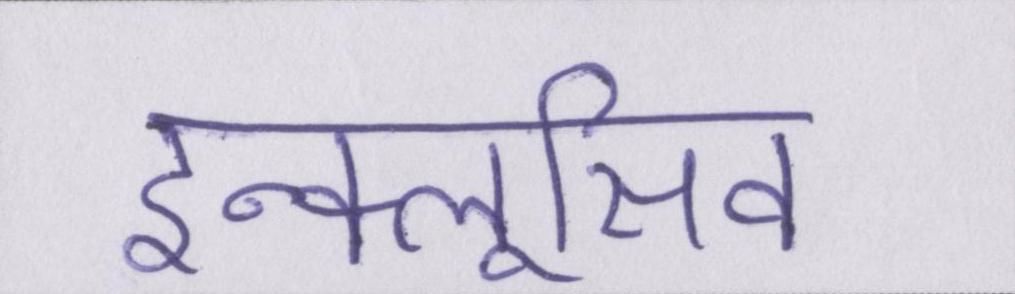 इन्क्लूसिव